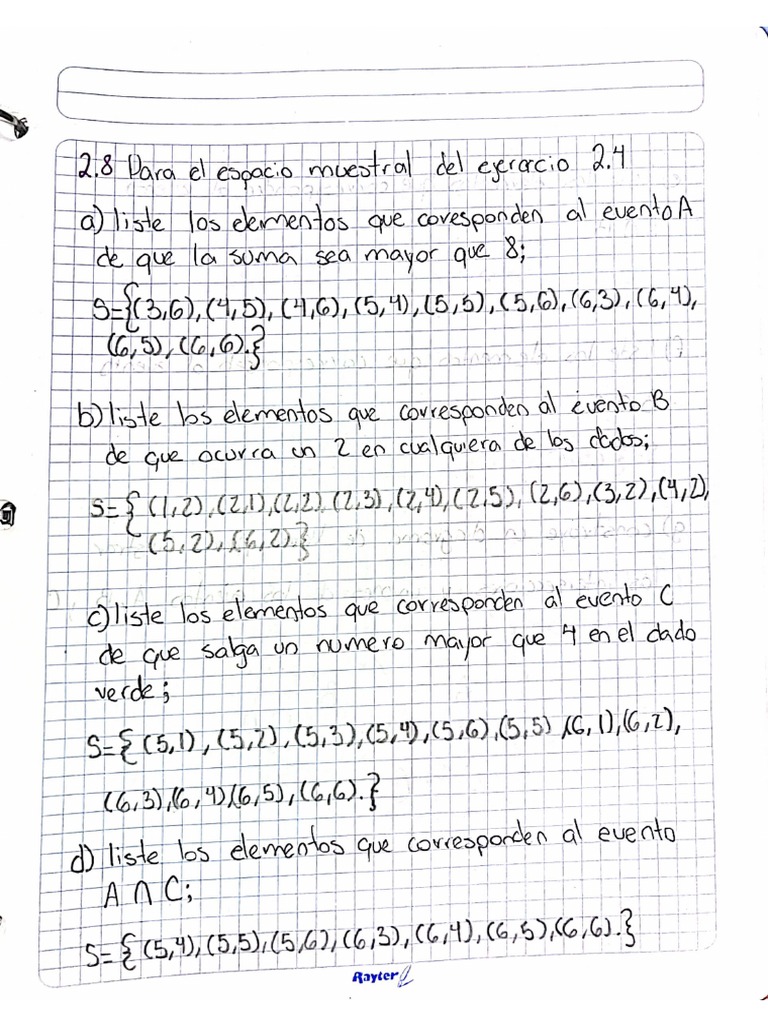 2.8 Para el espacio muestral del ejercicio 2.4
a) liste los elementos que coresponden al evento A
de que la suma sea mayor que 8;
S={(3,6),(4,5),(4,6),(5,4),(5,5),(5,6),(6,3),(6,4),
(6,5),(6,6).}
b) liste los elementos que corresponden al evento B
de que ocurra un 2 en cualquiera de los dados;
S={(1,2),(2,1),(2,2),(2,3),(2,4),(2,5),(2,6),(3,2),(4,2),
(5,2),(6,2).}
c) liste los elementos que corresponden al evento C
de que salga un numero mayor que 4 en el dado
verde;
S={(5,1),(5,2),(5,3),(5,4),(5,6),(5,5),(6,1),(6,2),
(6,3),(6,4)(6,5),(6,6).}
d) liste los elementos que corresponden al evento
A ∩ C;
S={(5,4),(5,5),(5,6),(6,3),(6,4),(6,5),(6,6).}
Rayter